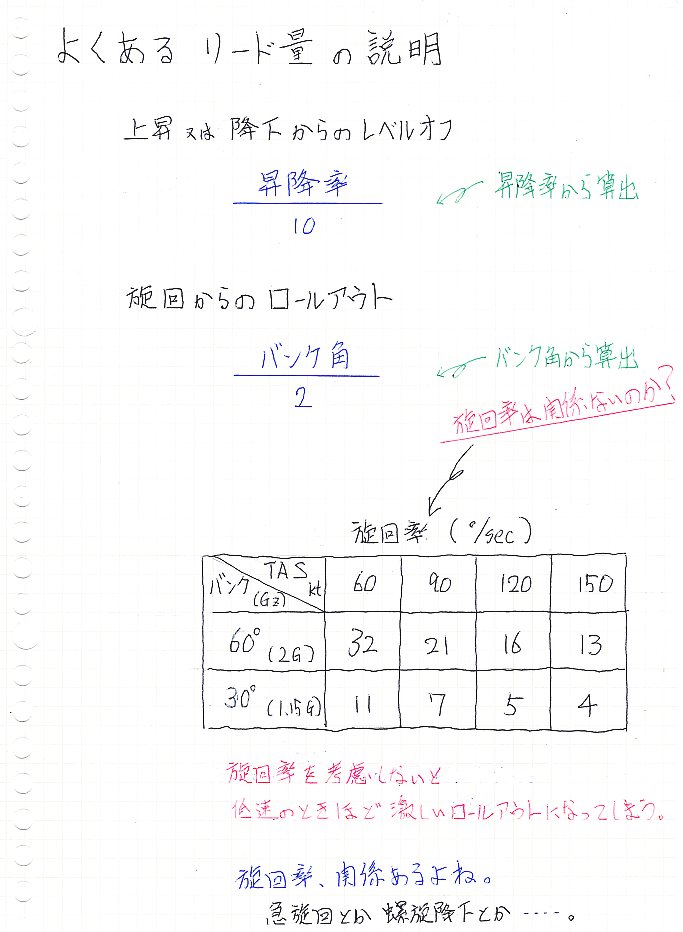 よくある リード量の説明
上昇又は降下からのレベルオフ
昇降率
10
昇降率から算出
旋回からのロールアウト
バンク角
2
バンク角から算出
旋回率は関係ないのか?
旋回率 (°/sec)
バンク (Gz) TAS kt 60 90 120 150
60° (2G) 32 21 16 13
30° (1.15G) 11 7 5 4
旋回率を考慮しないと
低速のときほど激しいロールアウトになってしまう。
旋回率、関係あるよね。
急旋回とか螺旋降下とか‥‥。